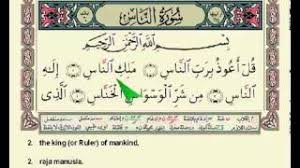 سُورَةُ النَّاسِ
بِسْمِ اللَّهِ الرَّحْمَٰنِ الرَّحِيمِ
قُلْ أَعُوذُ بِرَبِّ النَّاسِ مَلِكِ النَّاسِ إِلَٰهِ
النَّاسِ مِن شَرِّ الْوَسْوَاسِ الْخَنَّاسِ الَّذِي
2. the king (or Ruler) of mankind,
2. raja manusia.